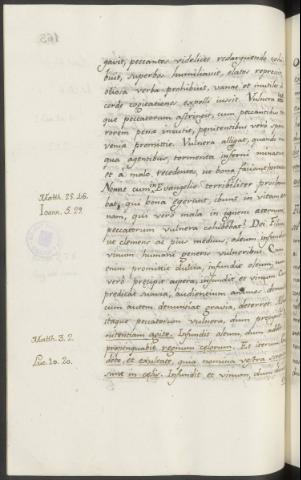 163
gavit, peccantes videlicet redarguendo cohi-
buit, superbos humiliavit, elatos repressit
otiosa verba prohibuit, vanas et inutiles
corde cogitationes expelli iussit. Vulnera
que peccatorum astringit, cum peccantibus
rorem pena incutit, penitentibus vero spem
venia promittit. Vulnera alligat, quando
qua agentibus tormenta inferni minatur
et a malo recedentes, ut bona faciant
Nonne cum in Evangelio terribiliter procla-
bat, qui bona egerunt, ibunt in vitam
nam, qui verò mala in ignem eternum
peccatorum vulnera cohibebat? Dei Filius
ut clemens ac pius medicus, oleum infundit
vinum humani generis vulneribus. Cum
enim promittit dulcia, infundit oleum, cum
verò precipit aspera, infundit et vinum. Cum
predicat suavia, audientium animos
cum autem denuntiat gravia, deterret.
itaque peccatorum vulnera, dum precipit
nitentiam agite. Infundit oleum, dum addit
propinquabit regnum celorum. Et iterum
dete, et exultate, quia nomina vestra scripta
sunt in celis. Infundit et vinum, dum
Matth. 25. 46.
Ioann. 5. 29.
Matth. 3. 2.
Luc. 10. 20.